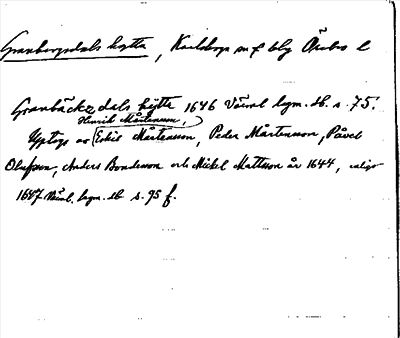 Granbergsdals hytta, Karlskoga sn o bg Örebro l
Granbäckzdals hytte 1646 Värml. bgm. db. s. 75.
Henrik Mårtensson,
Upptogs av Eskil Mårtensson, Peder Mårtensson, Påvel
Olufsson, Anders Bondesson och Mickel Mattsson år 1644, enligt
1647 Värml. bgm. db s. 95 f.